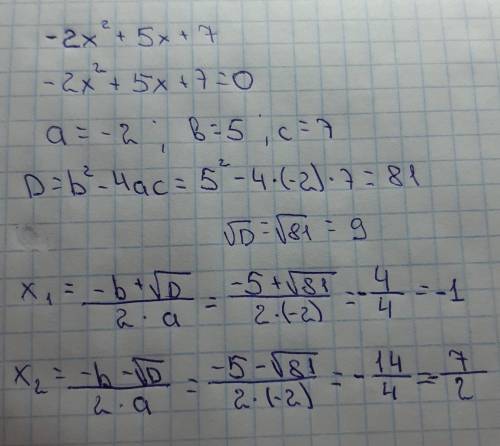 -2x² + 5x + 7
-2x² + 5x + 7 = 0
a = -2 ; b = 5 ; c = 7
D = b² - 4ac = 5² - 4·(-2)·7 = 81
√D = √81 = 9
x₁ = (-b + √D)/(2·a) = (-5 + √81)/(2·(-2)) = -4/4 = -1
x₂ = (-b - √D)/(2·a) = (-5 - √81)/(2·(-2)) = -14/4 = 7/2